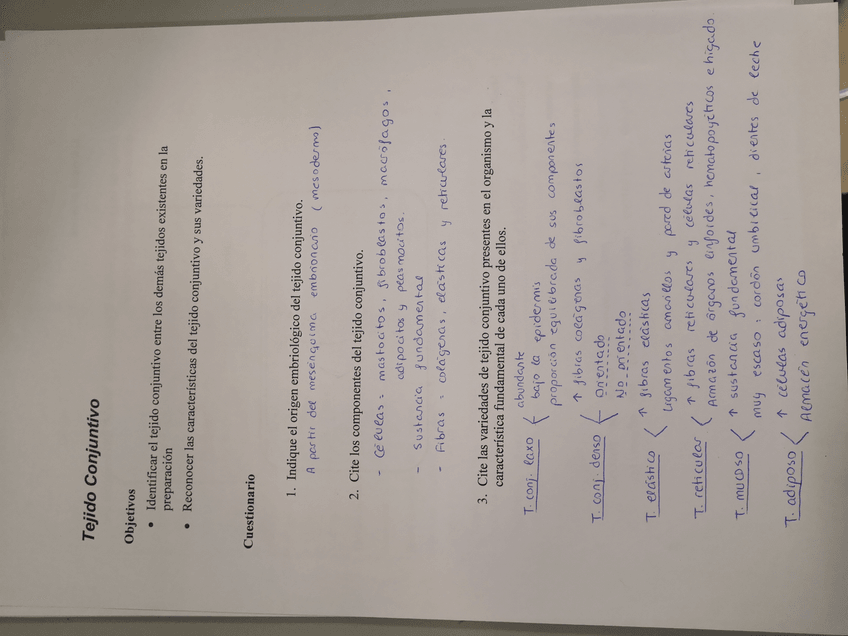 Tejido Conjuntivo
Objetivos
• Identificar el tejido conjuntivo entre los demás tejidos existentes en la
preparación
• Reconocer las características del tejido conjuntivo y sus variedades.
Cuestionario
1. Indique el origen embriológico del tejido conjuntivo.
A partir del mesénquima embrionario (mesodermo)
2. Cite los componentes del tejido conjuntivo.
- Células: mastocitos, fibroblastos, macrófagos,
adipocitos y plasmocitos.
- Sustancia fundamental
- Fibras: colágenas, elásticas y reticulares.
3. Cite las variedades de tejido conjuntivo presentes en el organismo y la
característica fundamental de cada uno de ellos.
abundante
T. conj. laxo < bajo la epidermis
proporción equilibrada de sus componentes
↑ fibras colágenas y fibroblastos
T. conj. denso < orientado
No orientado
T. elástico < ↑ fibras elásticas
Ligamentos amarillos y pared de arterias
T. reticular < ↑ fibras reticulares y células reticulares
Armazón de órganos linfoides, hematopoyéticos e hígado.
T. mucoso < ↑ sustancia fundamental
muy escaso: cordón umbilical, dientes de leche
T. adiposo < ↑ células adiposas
Almacén energético